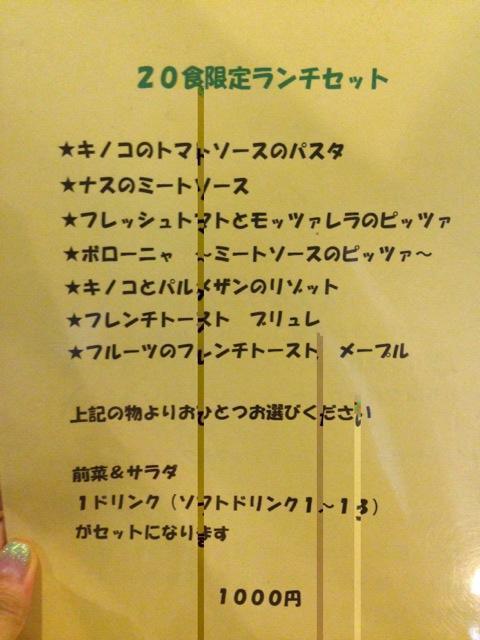 20食限定ランチセット
★キノコのトマトソースのパスタ
★ナスのミートソース
★フレッシュトマトとモッツァレラのピッツァ
★ボローニャ ～ミートソースのピッツァ～
★キノコとパルメザンのリゾット
★フレンチトースト ブリュレ
★フルーツのフレンチトースト メープル
上記の物よりおひとつお選びください
前菜＆サラダ
1ドリンク（ソフトドリンク1～13）
がセットになります
1000円